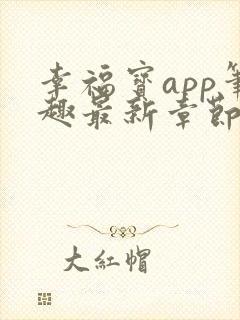 幸福宝app笔
趣最新章节
大红帽